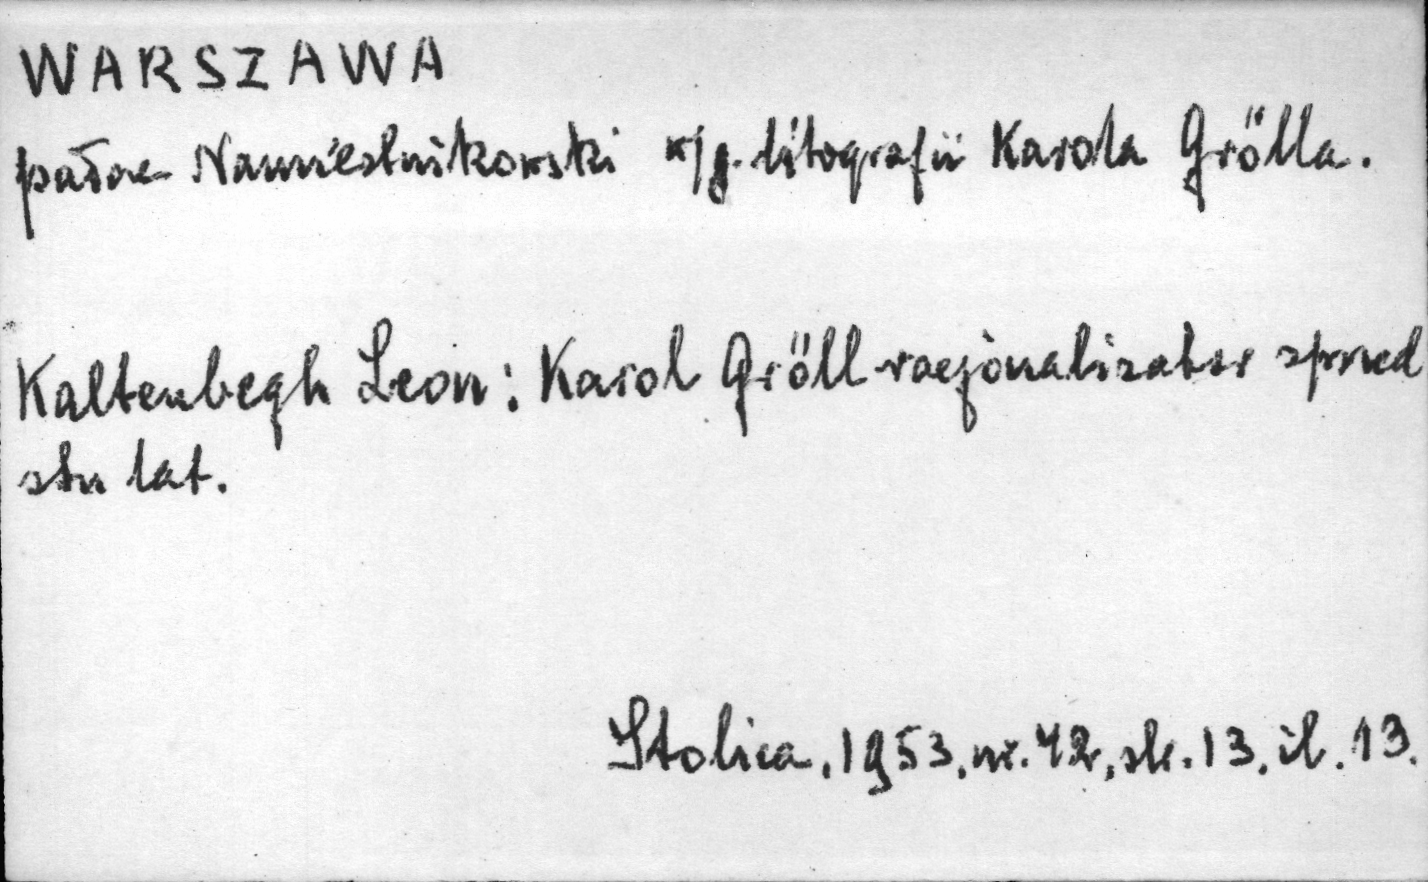 WARSZAWA
pałac Namiestnikowski w/g. litografii Karola Grölla.
Kaltenbegh Leon: Karol Gröll racjonalizator sprzed
stu lat.
Stolica, 1953, nr. 42, str. 13, il. 13.